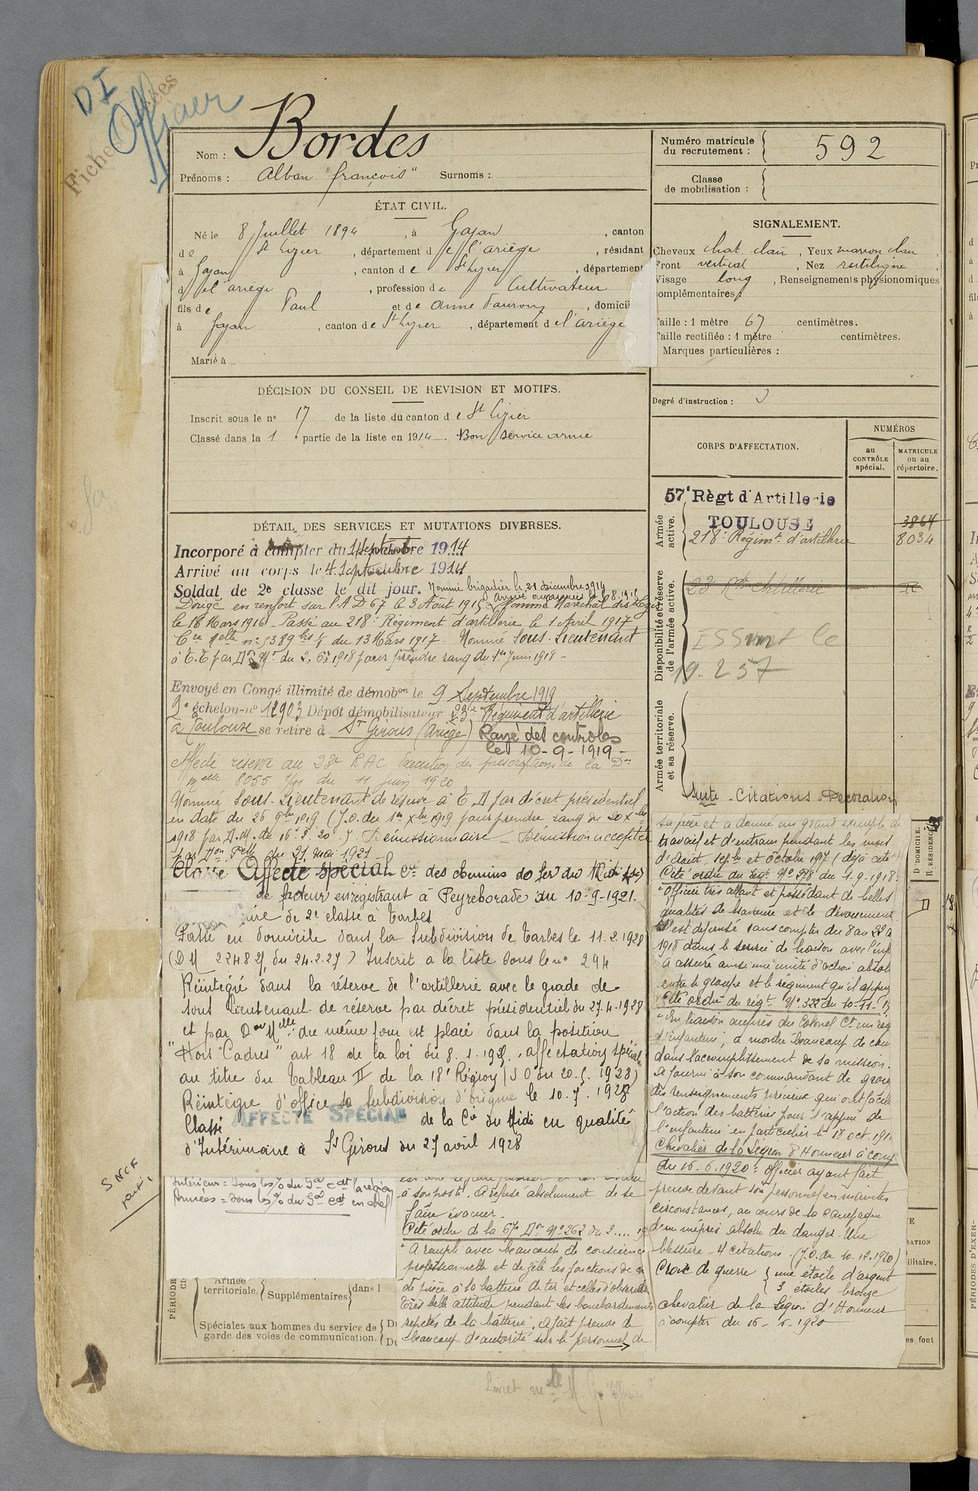 D I
Officier
Nom : Bordes
Prénoms : Alban "françois" Surnoms :
Numéro matricule du recrutement : 592
Classe de mobilisation :
ÉTAT CIVIL.
Né le 8 Juillet 1894, à Gajan, canton
de St Lizier, département de l'ariège, résidant
à Gajan, canton de St Lizier, département
d el'ariège, profession de Cultivateur
fils de Paul et de Anne, domicilié
à Gajan, canton de St Lizier, département de l'ariège
Marié à
SIGNALEMENT.
Cheveux chat. clair, Yeux marron clair,
Front vertical, Nez rectiligne,
Visage long, Renseignements physionomiques
complémentaires :
Taille : 1 mètre 67 centimètres.
Taille rectifiée : 1 mètre centimètres.
Marques particulières :
Degré d'instruction :
DÉCISION DU CONSEIL DE REVISION ET MOTIFS.
Inscrit sous le no 17 de la liste du canton de St Lizier
Classé dans la 1 e partie de la liste en 1914. Bon service armé
CORPS D'AFFECTATION.
NUMÉROS
au CONTRÔLE spécial.
MATRICULE ou au répertoire.
Armée active.
57e Règt d'Artillerie
TOULOUSE
3864
218e Régimt d'artillerie
8034
Disponibilité et réserve de l'armée active.
23 Artillerie
19.257
Armée territoriale et sa réserve.
DÉTAIL DES SERVICES ET MUTATIONS DIVERSES.
Incorporé à compter du 1 Septembre 1914
Arrivé au corps le 4 Septembre 1914
Soldat de 2e classe le dit jour. Nommé brigadier le 21 décembre 1914
Dirigé en renfort sur l'A D 67 le 3 Août 1915 Nommé Maréchal des Logis
le 16 Mars 1916 Passé au 218e Régiment d'artillerie le 1 avril 1917
du 13 Mars 1917 Nommé Sous-Lieutenant
pour prendre rang du 1er Juin 1918 -
Envoyé en Congé illimité de démobon le 9 Septembre 1919
9e échelon no 12903 Dépôt démobilisateur 23e Régiment d'artillerie
à Toulouse se retire à St Girons (Ariège) Rayé des contrôles
le 10-9-1919 -
Affecté réserve au 23e RAC Exécution des prescriptions de la Don
melle 8055 du 11 juin 1920
Nommé Sous-Lieutenant de réserve à T.D par décret présidentiel
Démissionnaire - Démission acceptée
21 Mai 1921
Classé Affecté spécial Cie des chemins de fer du Midi
de facteur enregistrant à Peyrehorade du 10-9-1921.
de 2e classe à Tarbes
Passé en domicile dans la Subdivision de Tarbes le 11.2.1928
du 24.2.27) Inscrit à la liste sous le no 294
Réintégré dans la réserve de l'artillerie avec le grade de
sous lieutenant de réserve par décret présidentiel du 27.4.1928
et par Don Melle du même jour est placé dans la position
"Hors Cadres" art 18 de la loi du 8.1.1925, affectation spéciale
au titre du Tableau II de la 18e Région
Réintégré d'office sa subdivision d'origine le 10.7.1928
Classé AFFECTÉ SPÉCIAL de la Cie du Midi en qualité
d'Intérimaire à St Girons du 27 avril 1928
SNCF
Suite - Citations - Décorations
sa pièce et a donné un grand exemple de
travail et d'entrain pendant les mois
d'Août, Sepbre et Octobre 1917 (déjà cité)
Cité ordre du Régt No 218 du 1.9.1918:
"officier très allant et possédant de belles
qualités de bravoure et de dévouement
s'est dépensé sans compter du 8 au
1918 dans le service de liaison avec l'inf
a assuré ainsi une unité d'action absolue
entre le groupe et le régiment qu'il appuy
Cité ordre du régt No 322 du 10-11-1
"En liaison auprès du Colonel Ct un rég
d'infanterie, a montré beaucoup de
dans l'accomplissement de sa mission.
A fourni à son commandant de groupe
des renseignements précieux qui ont facilité
l'action des batteries pour l'appui de
l'infanterie en particulier le 18 oct. 191
Chevalier de la Légion d'Honneur à comp
du 16.6.1920: officier ayant fait
preuve devant son personnel en maintes
circonstances, au cours de la campagne
d'un mépris absolu du danger. Une
blessure - 4 citations. (J.O. du 10.12.1920)
Croix de guerre { une étoile d'argent
3 étoiles bronze
Chevalier de la Légion d'Honneur
à compter du 16-6-1920
à son poste. A refusé absolument de se
faire évacuer.
Cité ordre de la 67e Don No 262
"A rempli avec beaucoup de conscience
professionnelle et de zèle les fonctions de
de pièce à la batterie de tir et celles d'observateur
Très belle attitude pendant les bombardements
répétés de la batterie, a fait preuve de
beaucoup d'autorité sur le personnel de
Armée territoriale.
Supplémentaires
dans l
Spéciales aux hommes du service de garde des voies de communication.
D. DOMICILE.
R. RÉSIDENCE.